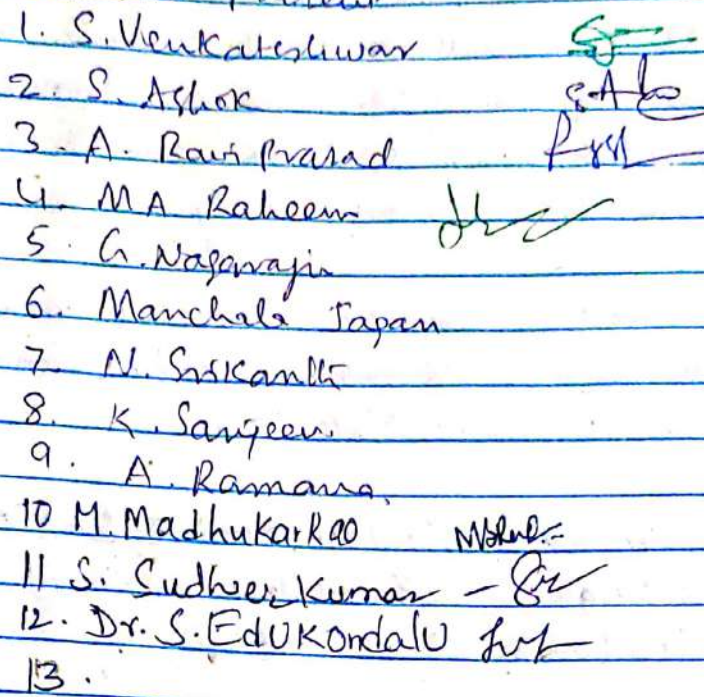 1. S. Venkateshwar
2. S. Ashok
3. A. Ravi Prasad
4. MA Raheem
5. G. Nagaraju
6. Manchala Jagan
7. N. Srikanth
8. K. Sanjeev.
9. A. Ramana.
10 M. Madhukar Rao
11 S. Sudheer Kumar -
12. Dr. S. EdUKondalU
13.